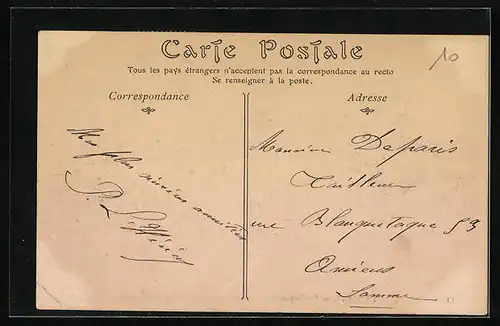 Carte Postale
10
Tous les pays étrangers n'acceptent pas la correspondance au recto
Se renseigner à la poste.
Correspondance
Mes plus sincères amitiés
P.
Adresse
Monsieur Deparis
Tailleur
rue Blanquetaque 53
Amiens
Somme